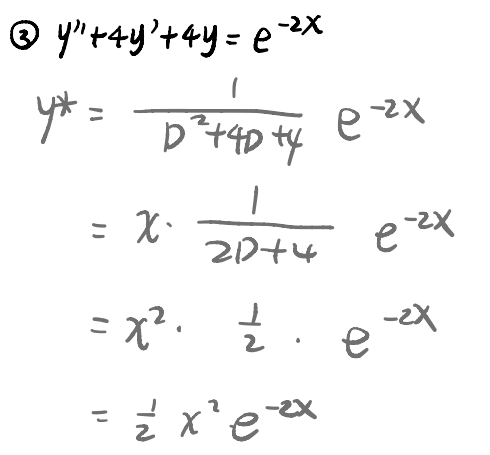 ③ y''+4y'+4y=e^{-2x}
y* = \frac{1}{D^2+4D+4} e^{-2x}
= x· \frac{1}{2D+4} e^{-2x}
= x^2· \frac{1}{2} · e^{-2x}
= \frac{1}{2} x^2 e^{-2x}